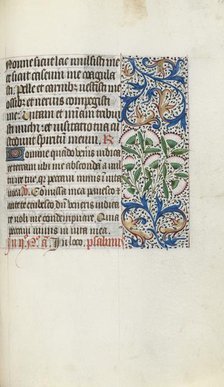 Nonne sicut lac mulsisti me
et sicut caseum me coagula
sti. pelle et carnib vestisti me
ossib et nervis compegisti
me Vitam et miam tribuisti
michi et visitatio tua cu
stodivit spiritum meum R
Domine quādo veneris iudica
re terram ubi me abscondā a
tue quia peccavi nimis ī vita
mea V Comissa mea pavesco et
ante te erubesco dum veneris iudica
re noli me condempnare Quia
peccavi nimis in vita mea
In ij N. a. In loco psalmus